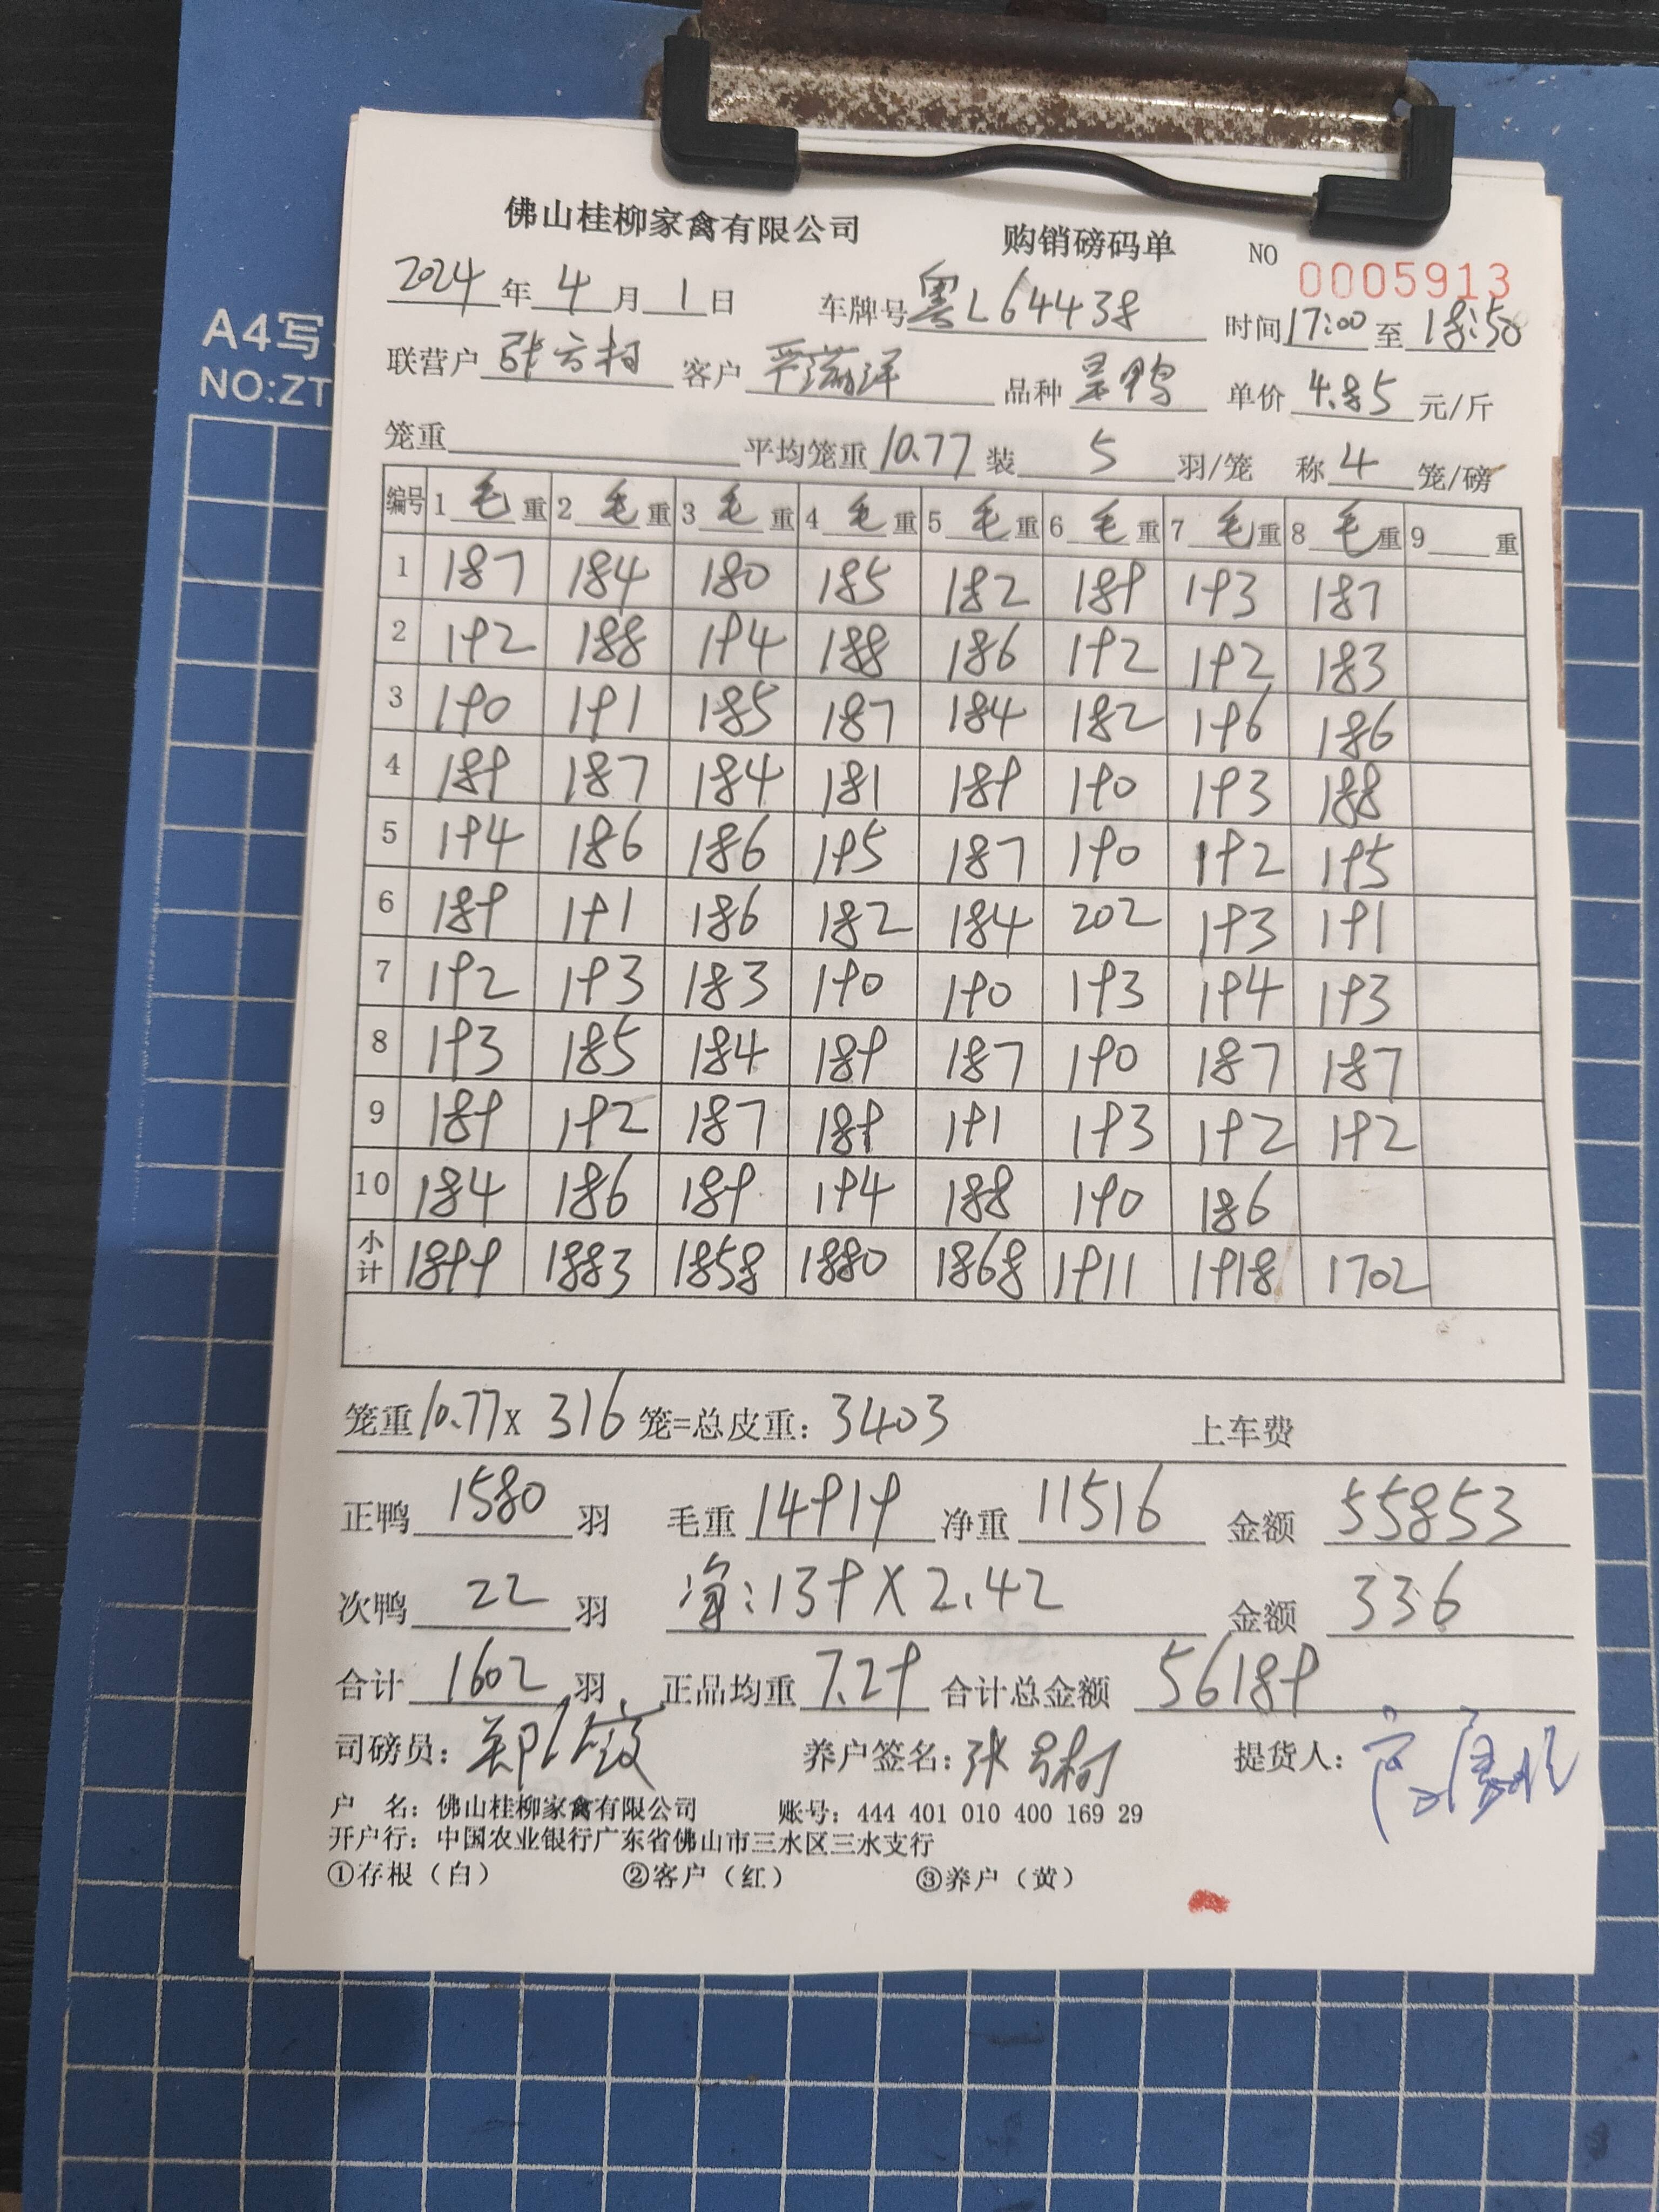 A4写
NO:ZT
佛山桂柳家禽有限公司 购销磅码单 NO 0005913
2024年4月1日 车牌号粤L64438 时间17:00至18:50
联营户 客户 品种 单价4.85元/斤
笼重 平均笼重10.77装5羽/笼 称4笼/磅
编号 1毛重 2毛重 3毛重 4毛重 5毛重 6毛重 7毛重 8毛重 9重
1 187 184 180 185 182 189 193 187
2 192 188 194 188 186 192 192 183
3 190 191 185 187 184 182 196 186
4 189 187 184 181 189 190 193 188
5 194 186 186 195 187 190 192 195
6 189 191 186 182 184 202 193 191
7 192 193 183 190 190 193 194 193
8 193 185 184 189 187 190 187 187
9 189 192 187 189 191 193 192 192
10 184 186 189 194 188 190 186
小计 1899 1883 1858 1880 1868 1911 1918 1702
笼重10.77X 316笼=总皮重：3403 上车费
正鸭1580羽 毛重14919 净重11516 金额55853
次鸭22羽 净:139X2.42 金额336
合计1602羽. 正品均重7.29 合计总金额56189
司磅员： 养户签名： 提货人：
户 名：佛山桂柳家禽有限公司 账号：444 401 010 400 169 29
开户行：中国农业银行广东省佛山市三水区三水支行
①存根（白） ②客户（红） ③养户（黄）